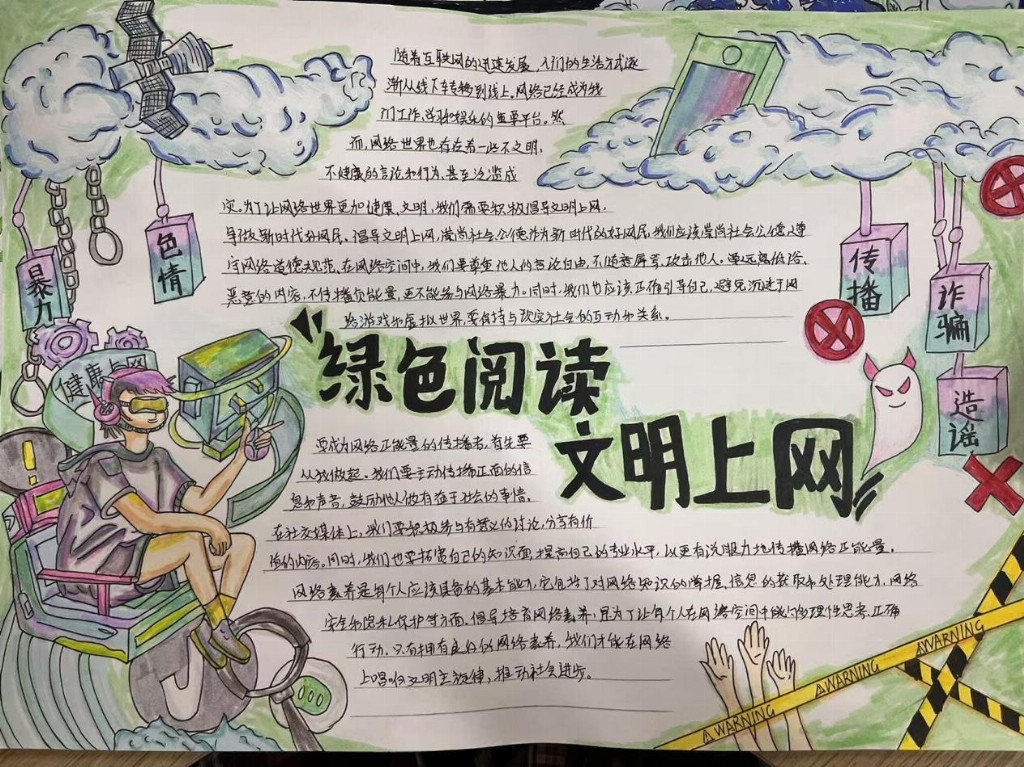 随着互联网的迅速发展，人们的生活方式逐
渐从线下转移到线上。网络已经成为我
们工作、学习和娱乐的重要平台。然
而，网络世界也存在着一些不文明、
不健康的言论和行为，甚至会造成
灾。为了让网络世界更加健康、文明，我们需要积极倡导文明上网，
争做新时代好网民。倡导文明上网，崇尚社会公德作为新时代的好网民，我们应该崇尚社会公德，遵
守网络道德规范。在网络空间中，我们要尊重他人的言论自由，不随意辱骂、攻击他人。要远离低俗、
恶意的内容，不传播负能量，更不能参与网络暴力。同时，我们也应该正确引导自己，避免沉迷于网
络游戏和虚拟世界，要保持与现实社会的互动和关系。
暴力
色情
传播
诈骗
造谣
健康上网
绿色阅读
文明上网
要成为网络正能量的传播者，首先要
从我做起。我们要主动传播正面的信
息和声音，鼓励他人做有益于社会的事情。
在社交媒体上，我们要积极参与有意义的讨论，分享有价
值的内容。同时，我们也要拓宽自己的知识面，提高自己的专业水平，以更有说服力地传播网络正能量。
网络素养是每个人应该具备的基本能力，它包括了对网络知识的掌握、信息的获取和处理能力、网络
安全和隐私保护等方面。倡导培育网络素养，是为了让每个人在网络空间中能够理性思考、正确
行动。只有拥有良好的网络素养，我们才能在网络
上唱响文明主旋律，推动社会进步。
WARNING
WARNING
WARNING
WARNING